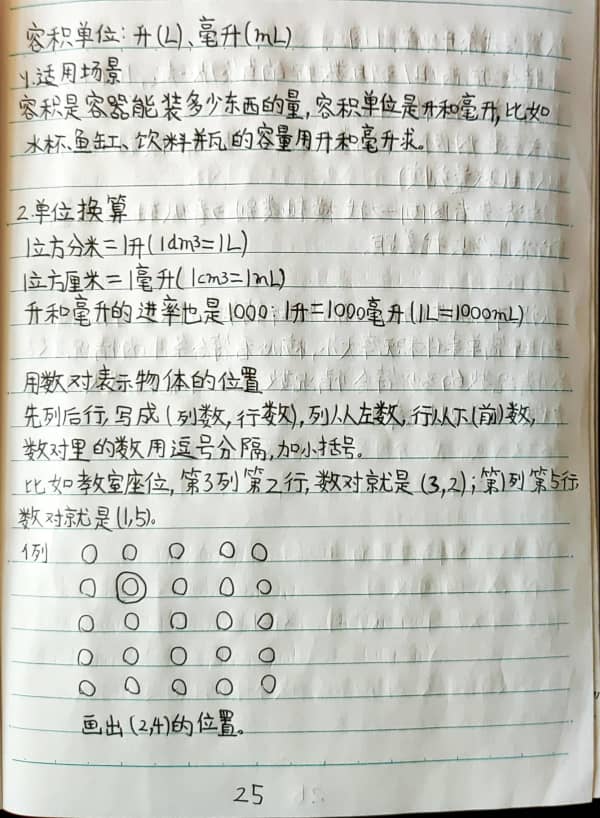 容积单位:升(L)、毫升(mL)
1.适用场景
容积是容器能装多少东西的量,容积单位是升和毫升,比如
水杯、鱼缸、饮料并瓦的容量用升和毫升求。
2.单位换算
1立方分米=1升(1dm³=1L)
1立方厘米=1毫升(1cm³=1mL)
升和毫升的进率也是1000:1升=1000毫升(1L=1000mL)
用数对表示物体的位置
先列后行,写成(列数,行数),列从左数,行从下(前)数,
数对里的数用逗号分隔,加小括号。
比如教室座位,第3列第2行,数对就是(3,2);第1列第5行,
数对就是(1,5)。
例
画出(2,4)的位置。
25